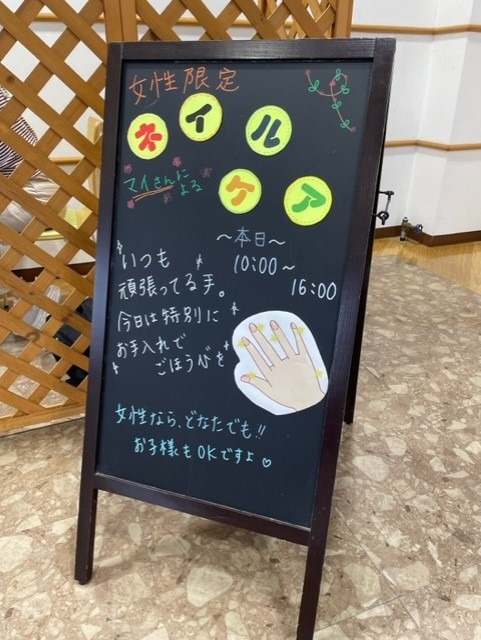 女性限定
ネイル
ケア
マイさんに
よる
～本日～
10:00～
16:00
いつも
頑張ってる手。
今日は特別に
お手入れで
ごほうびを
女性なら、どなたでも!!
お子様もOKですよ♡